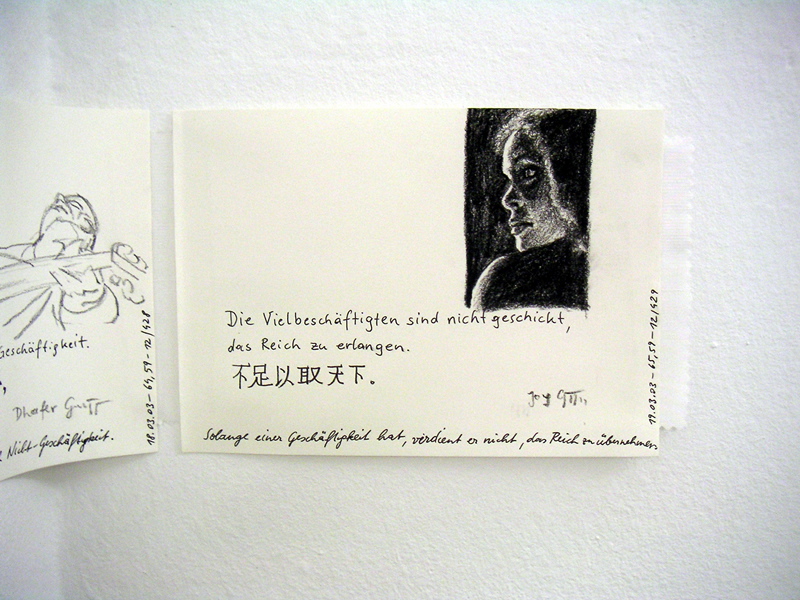 Geschäftigkeit.
Nicht-Geschäftigkeit.
18.03.03–64,59–12/428
Die Vielbeschäftigten sind nicht geschickt,
das Reich zu erlangen.
不足以取天下。
Solange einer Geschäftigkeit hat, verdient er nicht, das Reich zu übernehmen
19.03.03–65,59–12/429